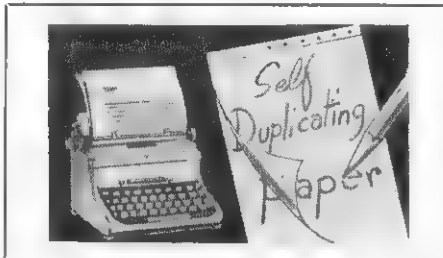 Self
Duplicating
paper